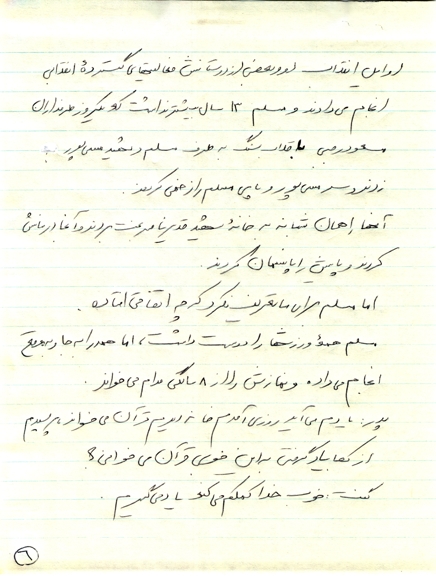 اوایل انقلاب او و بعضی از دوستانش فعالیتهای گسترده انقلابی
انجام می‌دادند و مسلم ۱۳ سال بیشتر نداشت که یکروز طرفداران
مسعود رجبی با قلاب سنگ به طرف مسلم و شهید حسن پور
زدند و سر حسن پور و پای مسلم را زخمی کردند.
آنها راهمان شبانه به خانه شهید بردند و آنجا درمانش
کردند و پایش را پانسمان کردند.
اما مسلم برای ما تعریف نکرد که چه اتفاقی افتاده.
مسلم همه ورزشها را دوست داشت، اما همه را به جا و به موقع
انجام می‌داد و نمازش را از ۸ سالگی مدام می‌خواند.
پدر: یادم می‌آید روزی آمدم خانه دیدم قرآن می‌خواند پرسیدم
از کجا یاد گرفتی به این خوبی قرآن می‌خوانی؟
گفت: خوب خدا کمکم می‌کند یاد می‌گیرم.
۶